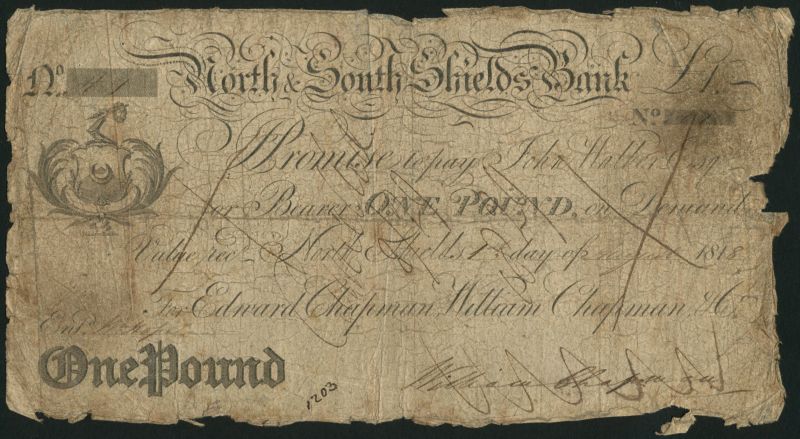 No. North & South Shields Bank £1
No.
I Promise to pay John Walker Esqr.
or Bearer ONE POUND, on Demand
Value recd. North Shields 1st day of 1818
For Edward Chapman, William Chapman, & Co.
Entd.
One Pound
1203
William Chapman Junr